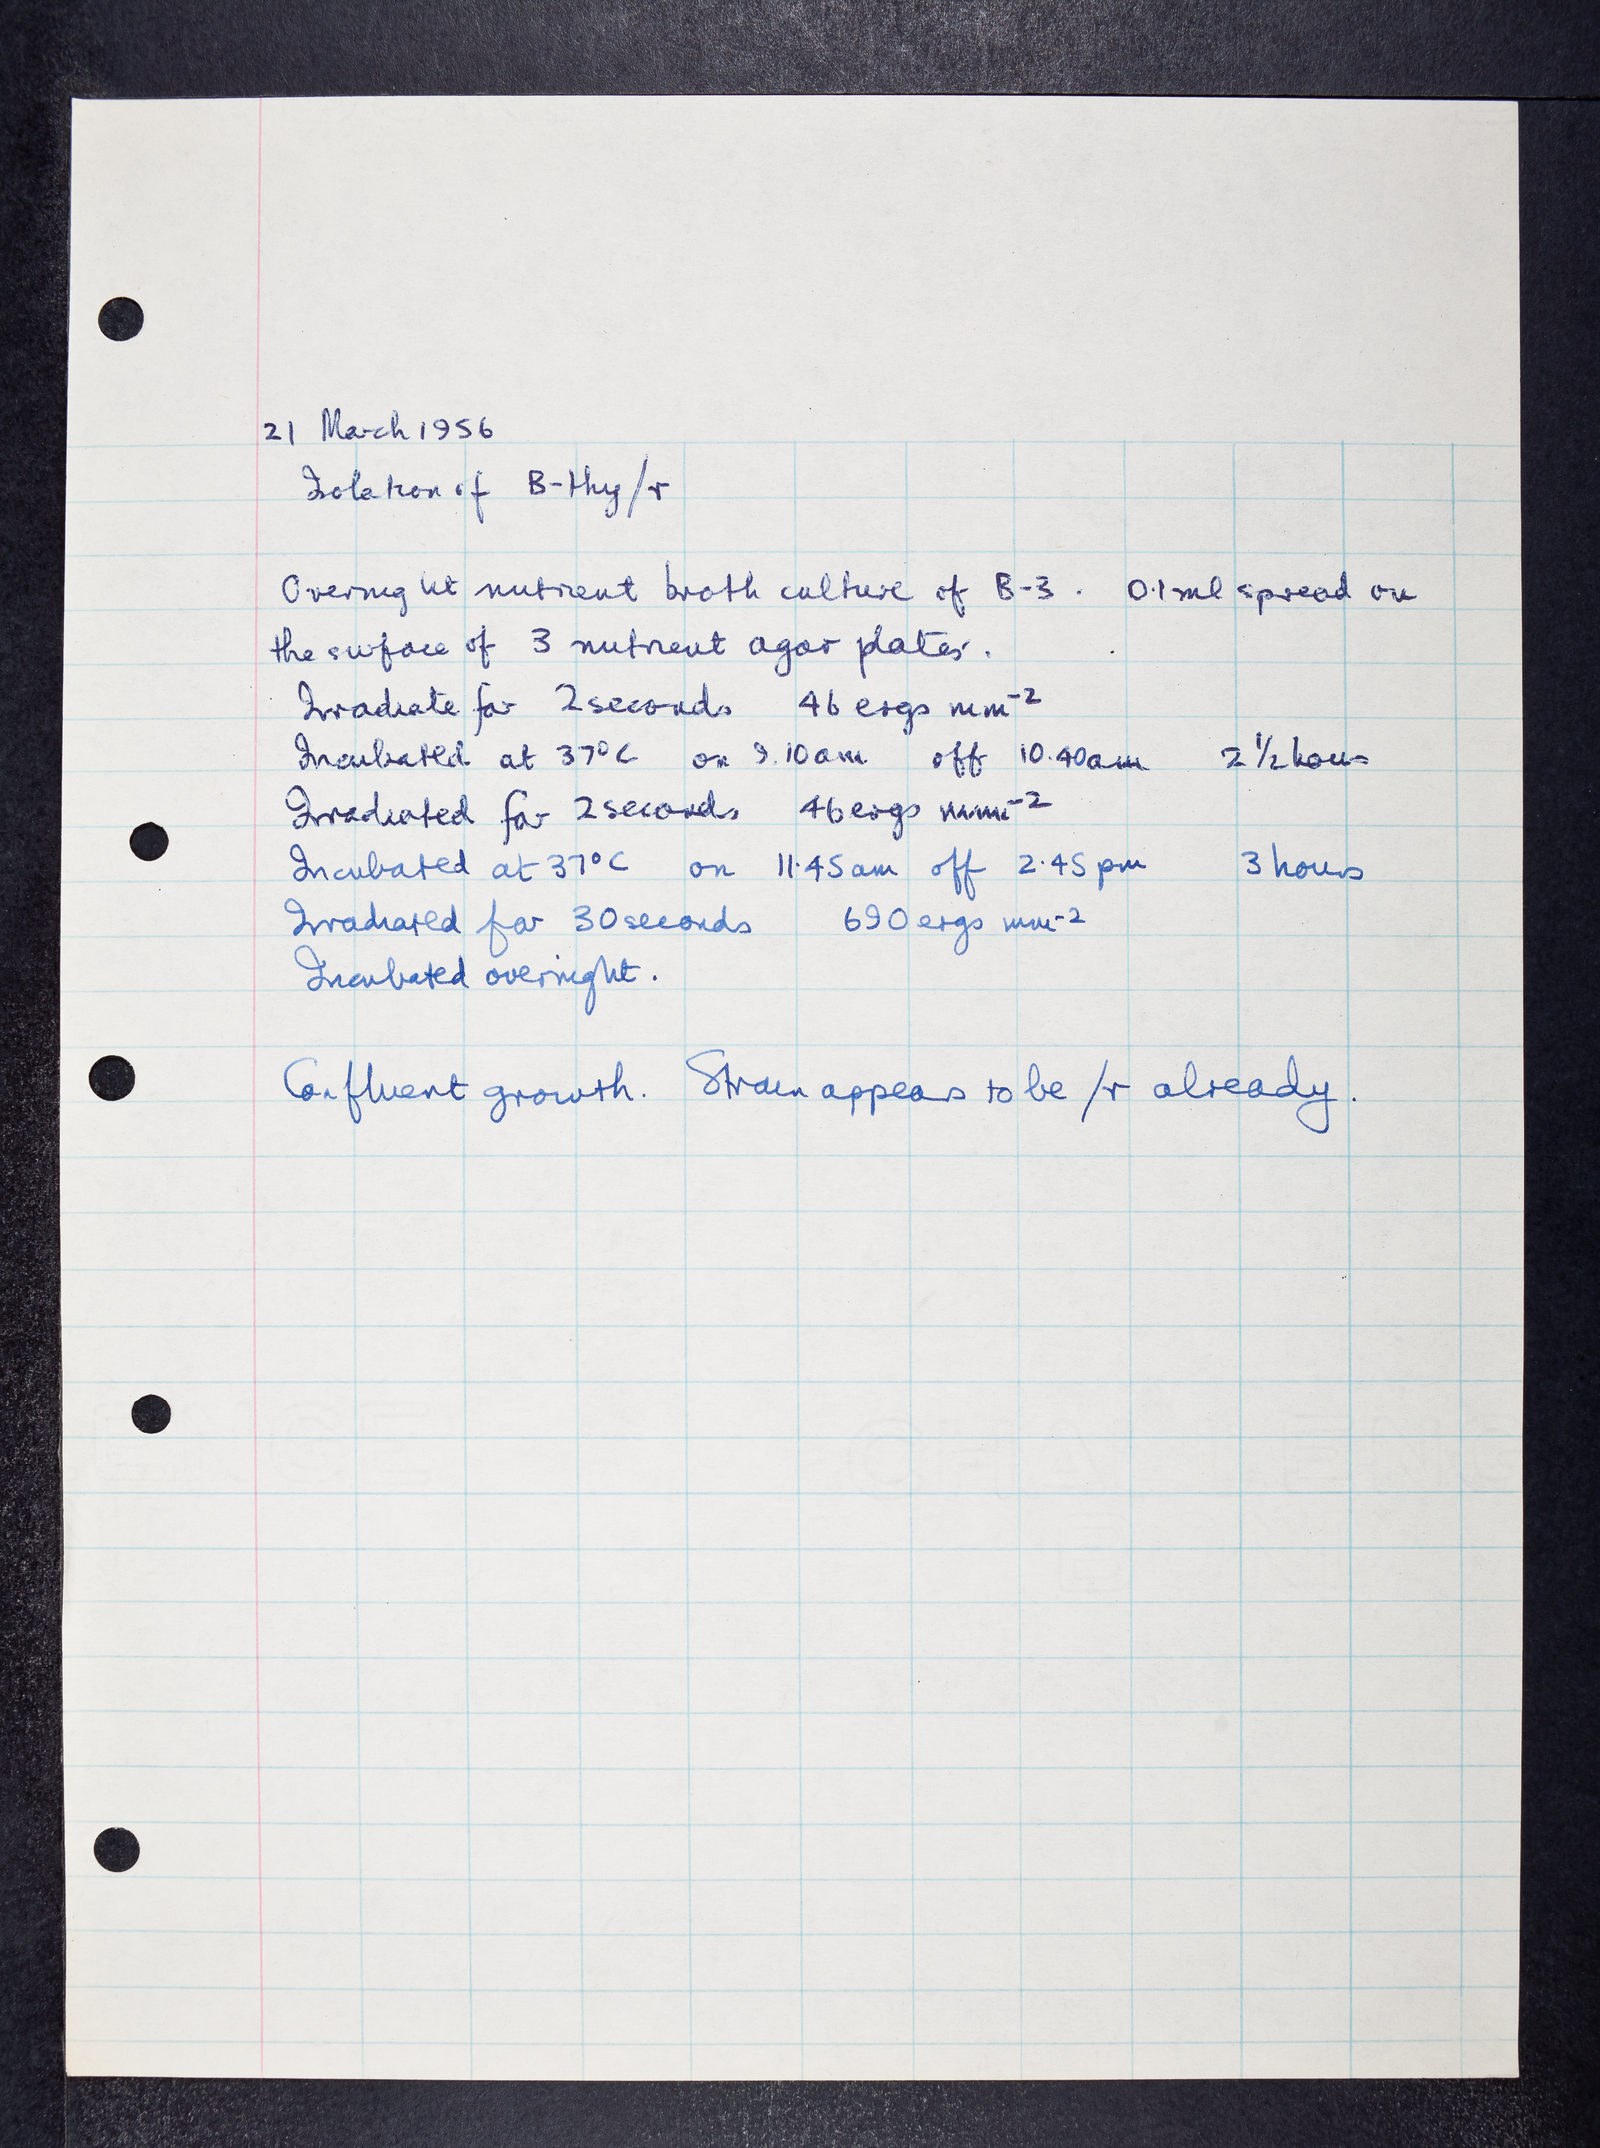 21 March 1956
Isolation of B-thy/r
Overnight nutrient broth culture of B-3. 0.1 ml spread on
the surface of 3 nutrient agar plates.
Irradiate for 2 seconds 46 ergs mm⁻²
Incubated at 37°C on 9.10 am off 10.40 am 2 1/2 hours
Irradiated for 2 seconds 46 ergs mm⁻²
Incubated at 37°C on 11.45 am off 2.45 pm 3 hours
Irradiated for 30 seconds 690 ergs mm⁻²
Incubated overnight.
Confluent growth. Strain appears to be /r already.